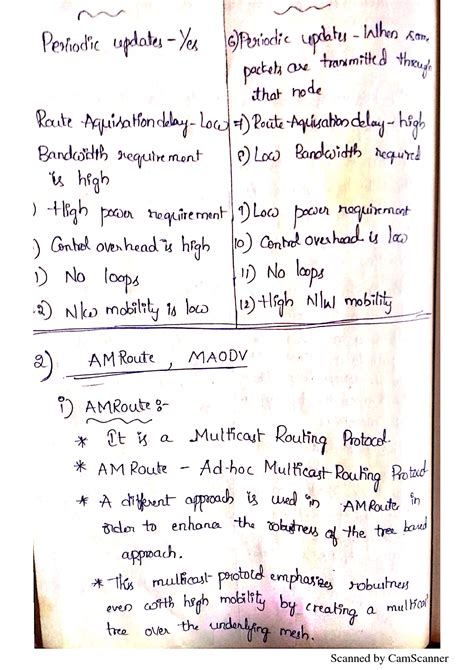 Periodic updates - Yes
6) Periodic updates - When som
packets are transmitted through
that node
Route Aquisation delay - Low
7) Route-Aquisation delay - high
Bandwidth requirement
is high
8) Low Bandwidth required
) High power requirement
9) Low power requirement
) Control overhead is high
10) Control overhead is low
1) No loops
11) No loops
2) N/w mobility is low
12) High N/W mobility
2) AMRoute, MAODV
i) AMRoute :-
* It is a Multicast Routing Protocol.
* AM Route - Ad-hoc Multicast Routing Protocol
* A different approach is used in AMRoute in
order to enhance the robustness of the tree based
approach.
* This multicast protocol emphasizes robustness
even with high mobility by creating a multicas
tree over the underlying mesh.
Scanned by CamScanner